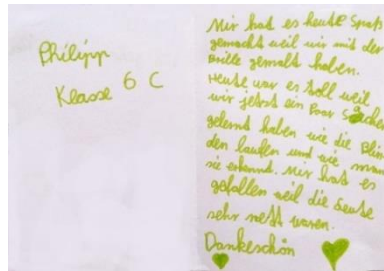 Philipp
Klasse 6 C
Mir hat es heute Spaß
gemacht weil wir mit der
Brille gemalt haben.
Heute war es toll weil
wir jetzt ein Paar Sachen
gelernt haben wie die Blin
den laufen und wie man
sie erkennd. Mir hat es
gefallen weil die Leute
sehr nett waren.
Dankeschön